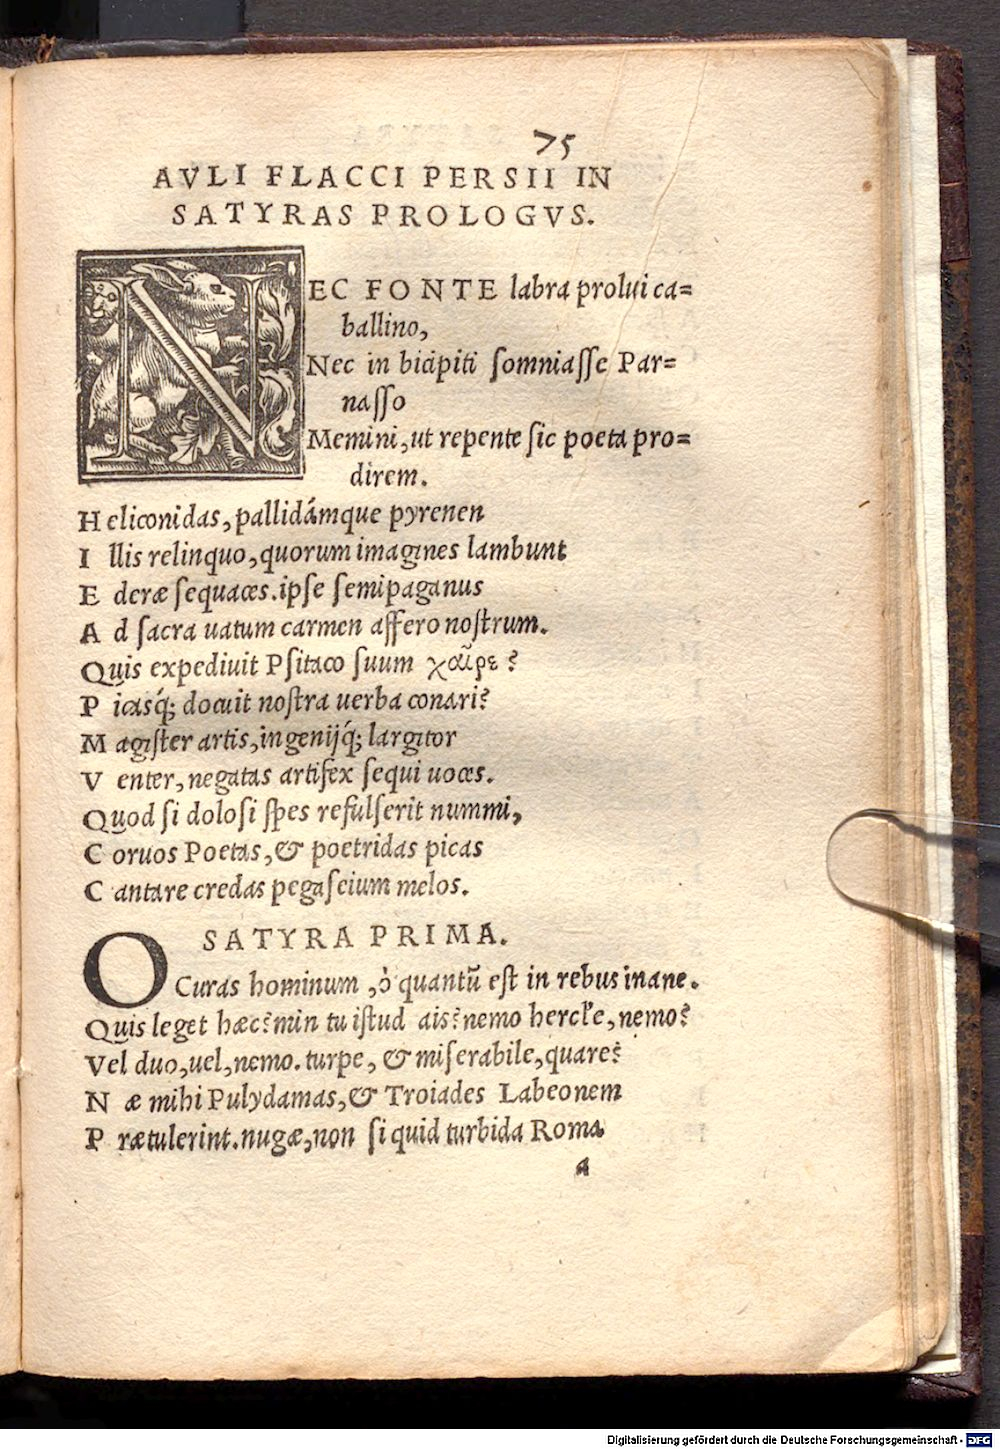 75
AVLI FLACCI PERSII IN
SATYRAS PROLOGVS.
NEC FONTE labra prolui ca=
ballino,
Nec in bicipiti somniasse Par=
nasso
Memini, ut repente sic poeta pro=
direm.
Heliconidas, pallidámque pyrenen
Illis relinquo, quorum imagines lambunt
Ederæ sequaces. ipse semipaganus
Ad sacra uatum carmen affero nostrum.
Quis expediuit Psitaco suum χαῖρε?
Picasq́; docuit nostra uerba conari?
Magister artis, ingenijq́; largitor
Venter, negatas artifex sequi uoces.
Quod si dolosi spes refulserit nummi,
Coruos Poetas, & poetridas picas
Cantare credas pegaseium melos.
SATYRA PRIMA.
O Curas hominum, ò quantũ est in rebus inane.
Quis leget hæc? min tu istud ais? nemo hercľe, nemo?
Vel duo, uel, nemo. turpe, & miserabile, quare?
Næ mihi Pulydamas, & Troiades Labeonem
Prætulerint. nugæ, non si quid turbida Roma
a
Digitalisierung gefördert durch die Deutsche Forschungsgemeinschaft - DFG